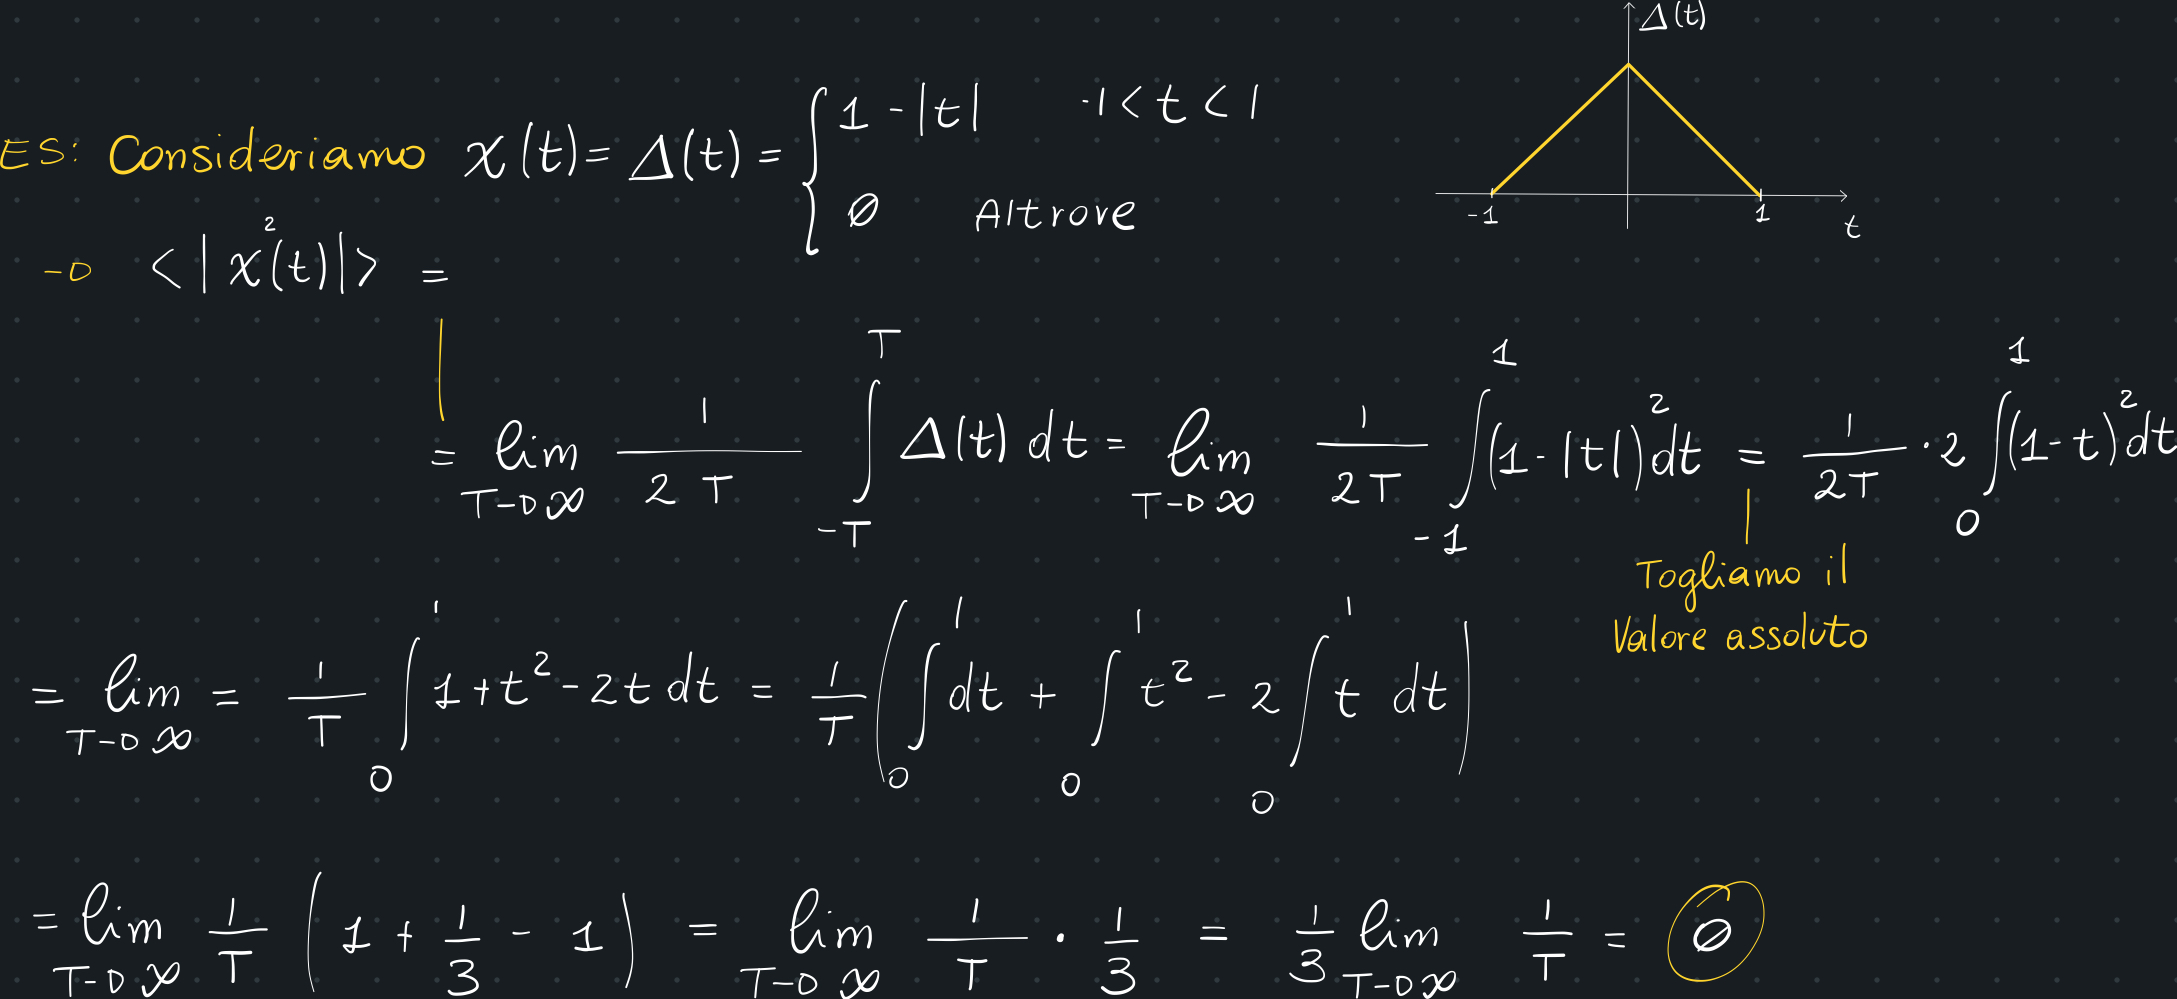 Δ(t)
ES: Consideriamo x(t) = Δ(t) = { 1 - |t|   -1 < t < 1
0   Altrove
-1   1   t
→ < | x²(t) | > =
= lim T→∞ 1/(2T) ∫_{-T}^{T} Δ(t) dt = lim T→∞ 1/(2T) ∫_{-1}^{1} (1 - |t|)² dt = 1/(2T) · 2 ∫_{0}^{1} (1 - t)² dt
Togliamo il
Valore assoluto
= lim T→∞ = 1/T ∫_{0}^{1} 1 + t² - 2t dt = 1/T ( ∫_{0}^{1} dt + ∫_{0}^{1} t² - 2 ∫_{0}^{1} t dt )
= lim T→∞ 1/T ( 1 + 1/3 - 1 ) = lim T→∞ 1/T · 1/3 = 1/3 lim T→∞ 1/T = 0